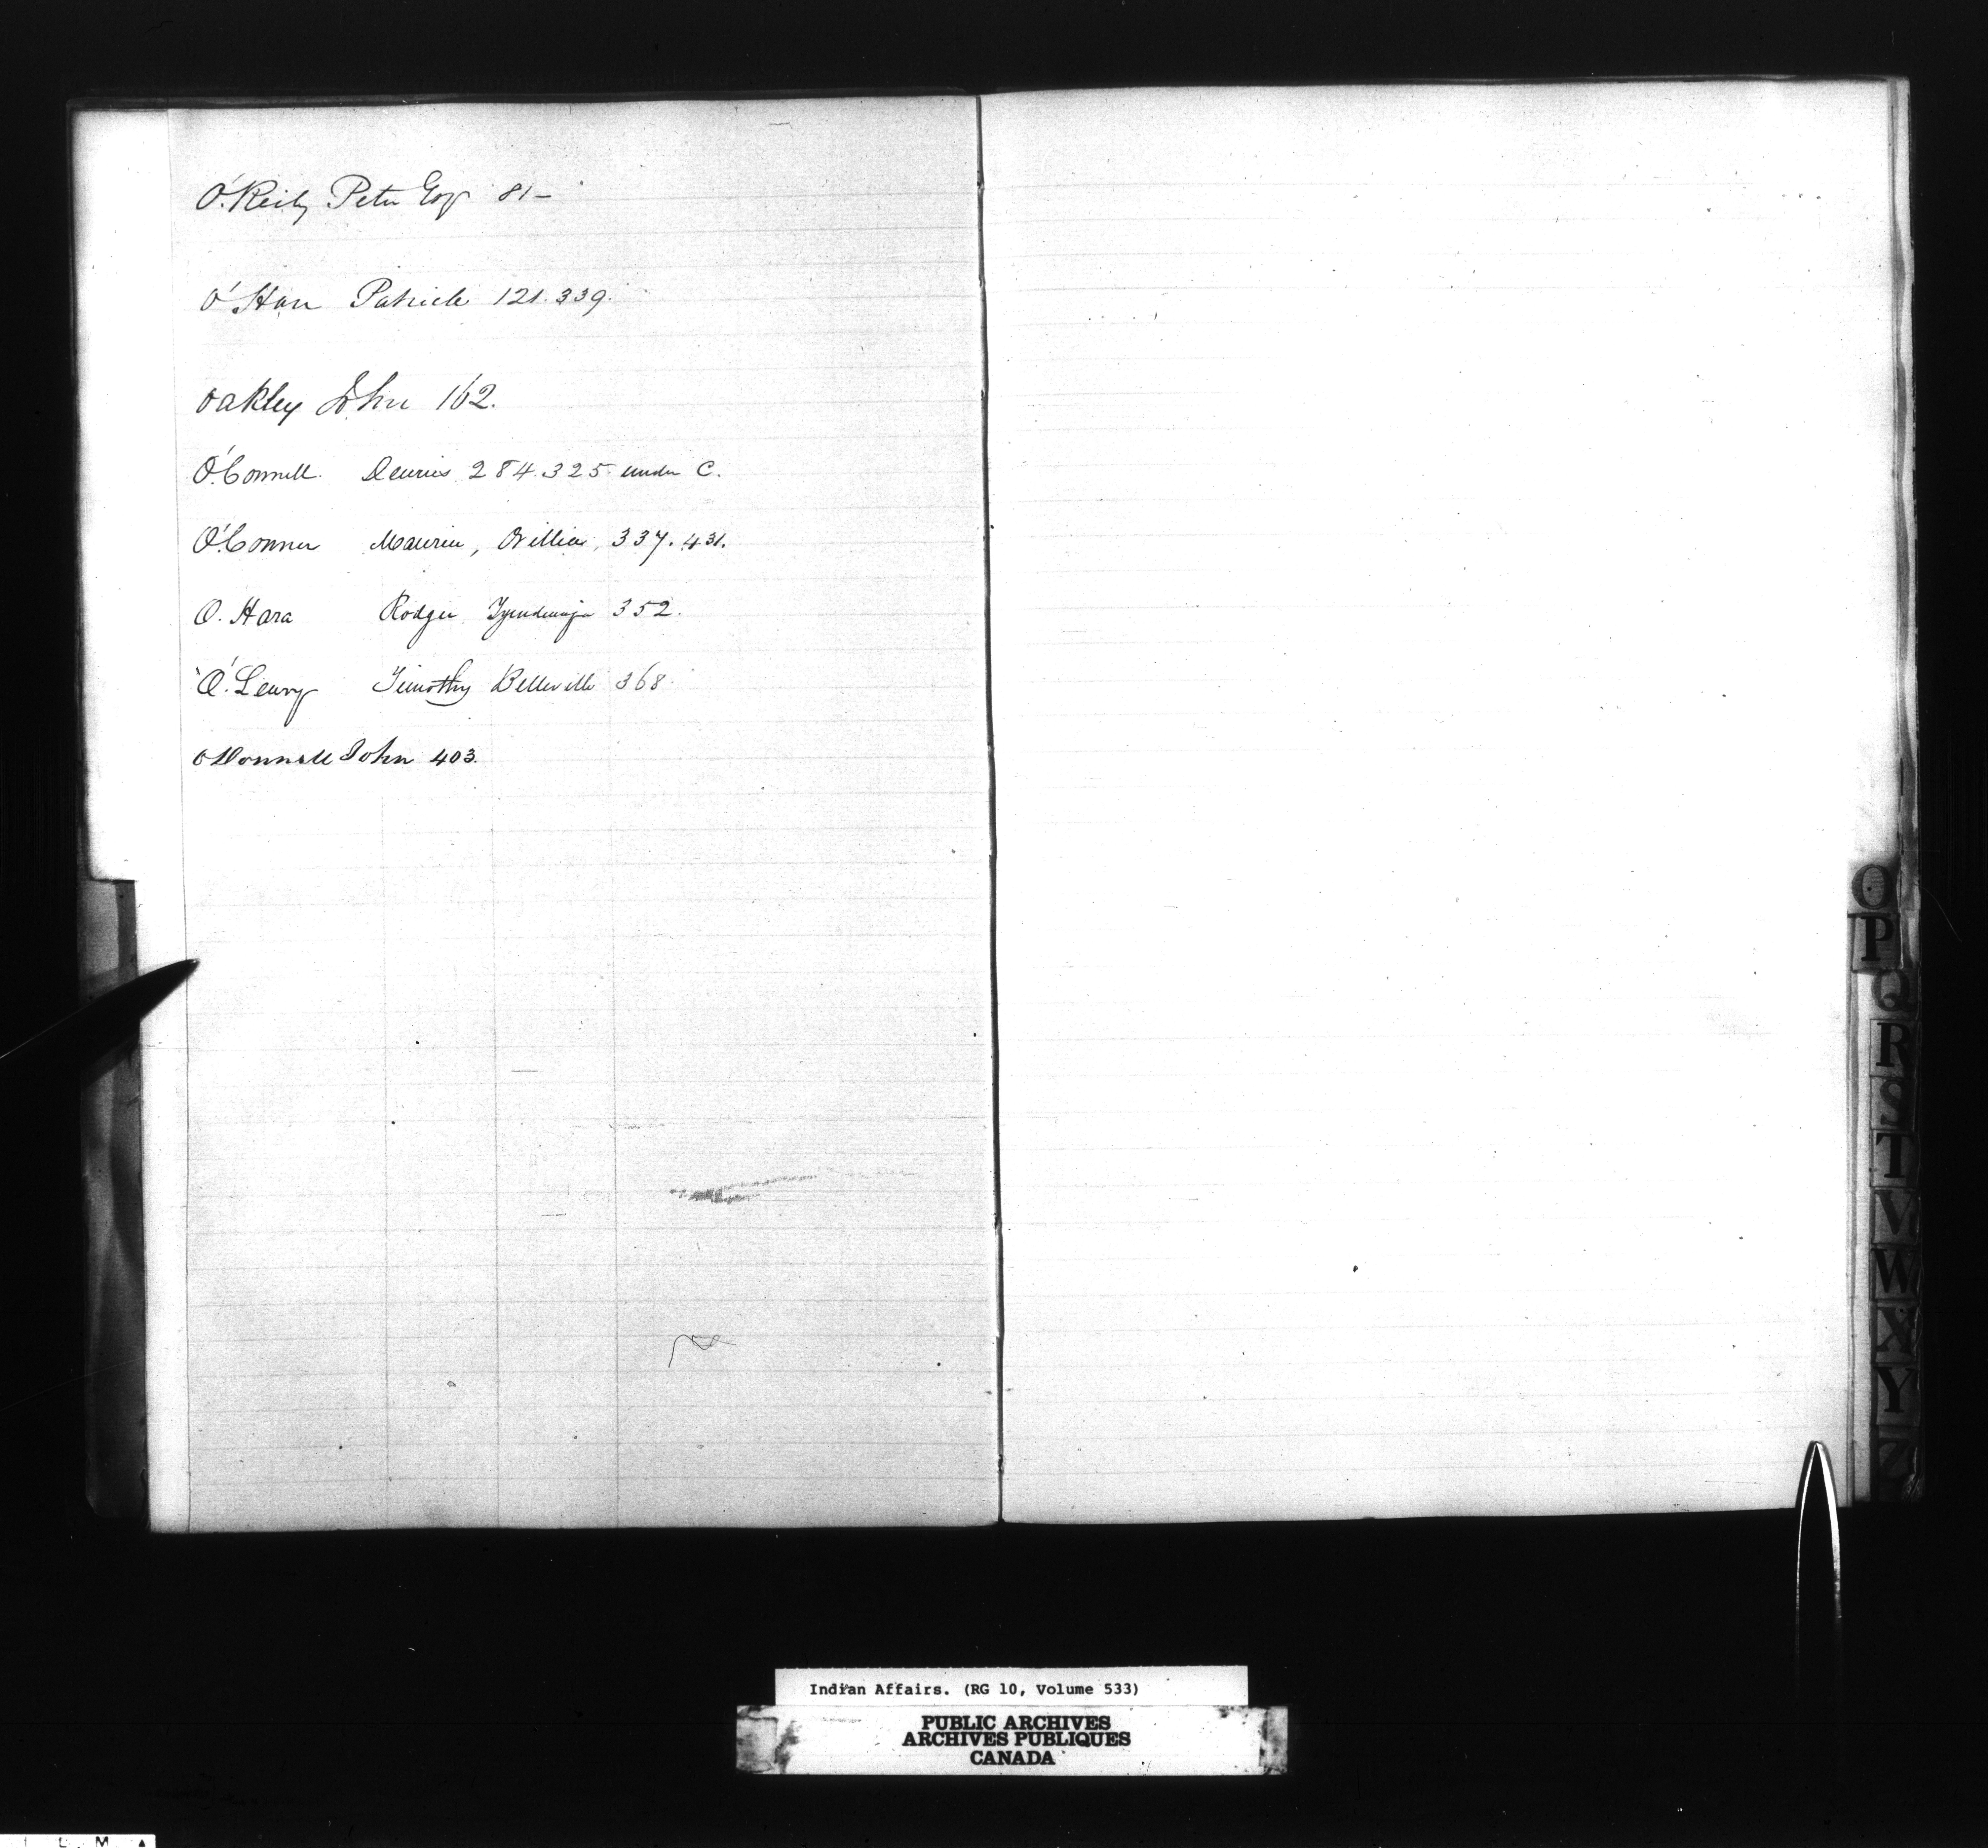 O'Reily Peter Esqr 81 -
O'Han Patrick 121. 339.
Oakley John 162.
O'Connell. Dennis 284. 325 under C.
O'Conner Maurice, Orillia, 337. 431.
O. Hara Rodger Tyendenaga 352.
O'Leary Timothy Belleville 368.
O Donnell John 403.
O
P
Q
R
S
T
V
W
X
Y
Z
Indian Affairs. (RG 10, Volume 533)
PUBLIC ARCHIVES
ARCHIVES PUBLIQUES
CANADA
L M